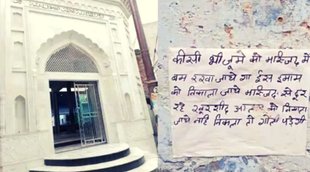 किसी भी जूमे को मस्जिद में
बम रखवा जाये गा ईस इमाम
को निकाला जाये मस्जिद से दूर
रहे खुरशीद आलम को निकाला
जाये नहि निकला तो गोली पड़ेगी